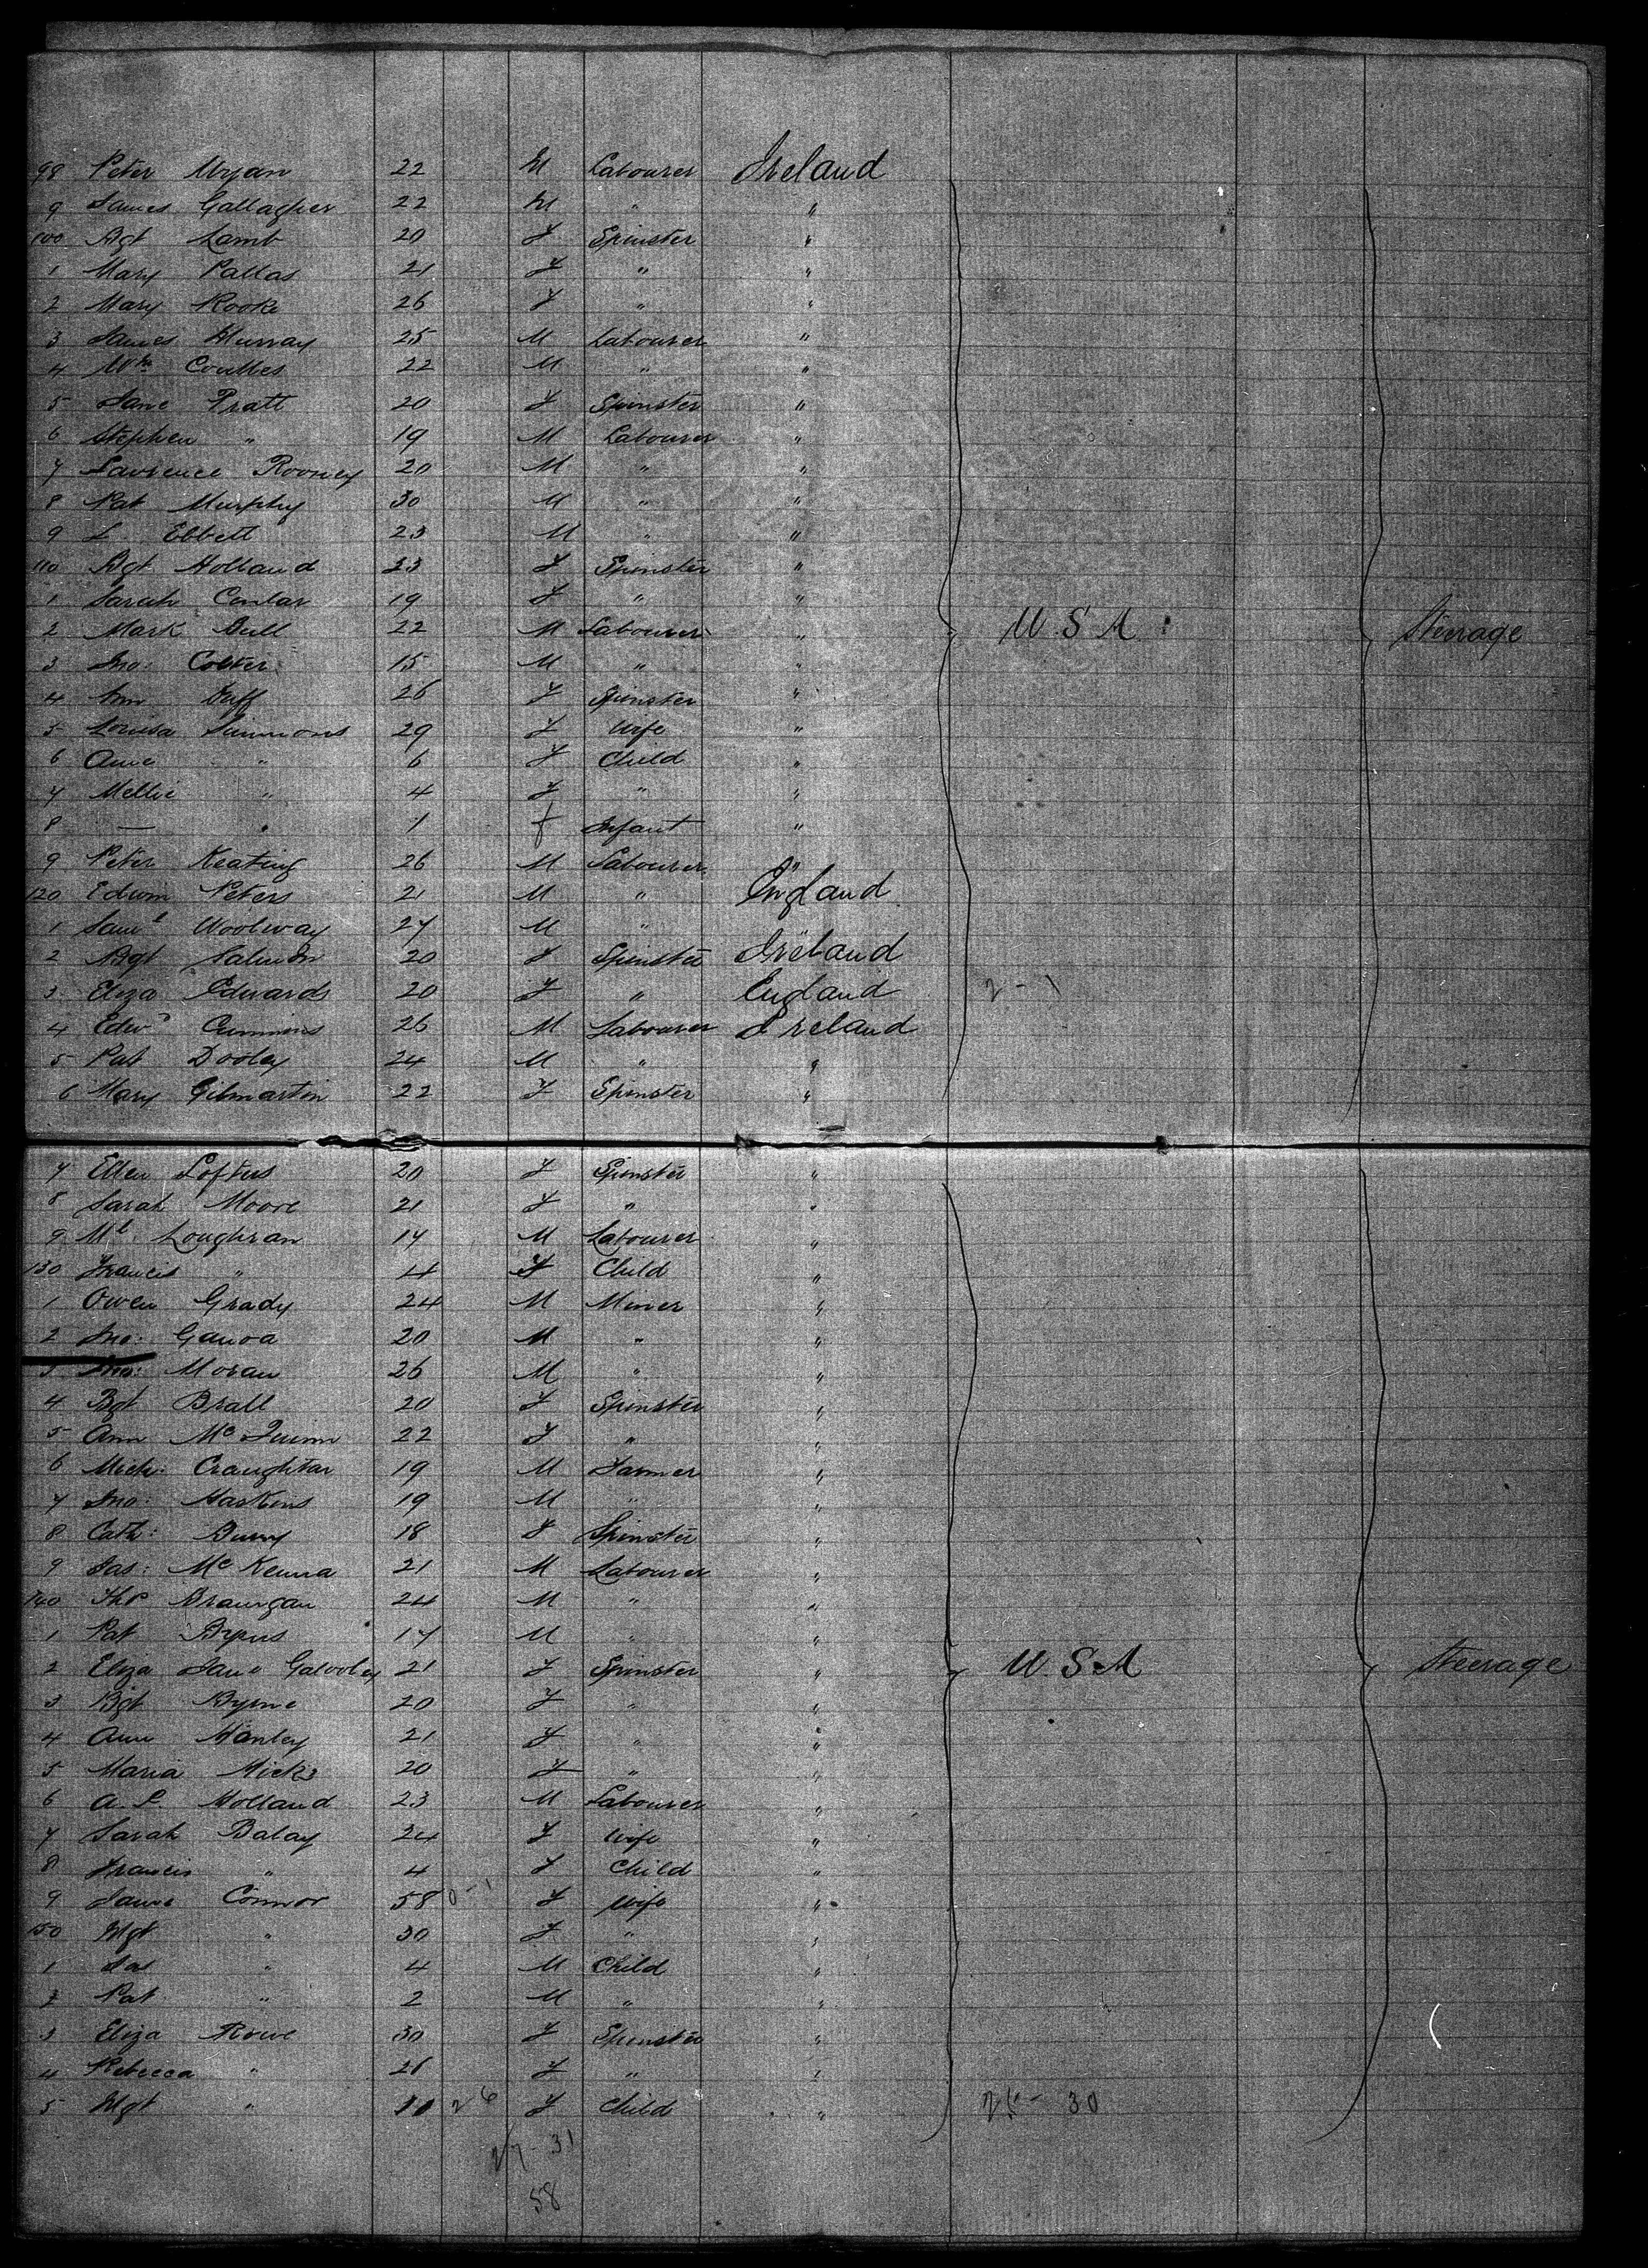 98 Peter Uryan 22 M Labourer Ireland
9 James Gallagher 22 M " "
100 Bgt Lamb 20 F Spinster "
1 Mary Pallas 21 F " "
2 Mary Rooke 26 F " "
3 James Murray 25 M Labourer "
4 Wm 22 M " "
5 Jane Pratt 20 F Spinster "
6 Stephen " 19 M Labourer "
7 Lawrence Rooney 20 M " "
8 Pat Murphy 30 M " "
9 L. Ebbett 23 M " "
110 Bgt Holland 23 F Spinster "
1 Sarah Conlar 19 F " "
2 Mark Bull 22 M Labourer " U.S.A. Steerage
3 Jno: Colter 15 M " "
4 Ann Duff 26 F Spinster "
5 Louisa Simmons 29 F Wife "
6 Anne " 6 F Child "
7 Mellie " 4 F " "
8 — " 1 f Infant "
9 Peter Keating 26 M Labourer "
120 Edwin Peters 21 M " England
1 Saml Woolway 27 M " "
2 Bgt Salmon 20 F Spinster Ireland
3 Eliza Edwards 20 F " England 2 - 1
4 Edwd Cummins 26 M Labourer Ireland
5 Pat Dooley 24 M " "
6 Mary Gilmartin 22 F Spinster "
7 Ellen Loftus 20 F Spinster "
8 Sarah Moore 21 F " "
9 Ml. Loughran 14 M Labourer "
130 Francis " 4 F Child "
1 Owen Grady 24 M Miner "
2 Jno: Ganoa 20 M " "
3 Jno: Moran 26 M " "
4 Bgt Brall 20 F Spinster "
5 Ann McQuinn 22 F " "
6 Mich: Craughtar 19 M Farmer "
7 Jno: Haskins 19 M " "
8 Cath: 18 F Spinster "
9 Jas: McKenna 21 M Labourer "
140 Thos Branigan 24 M " "
1 Pat Byrns 17 M " "
2 Eliza Jane Galooley 21 F Spinster " U.S.A Steerage
3 Bgt Byrne 20 F " "
4 Ann Manley 21 F " "
5 Maria Micks 20 F " "
6 A. L. Holland 23 M Labourer "
7 Sarah Balay 24 F Wife "
8 Francis " 4 F Child "
9 Jane Connor 58 0-1 F Wife "
150 Mgt " 30 F " "
1 Jas " 4 M Child "
2 Pat " 2 M " "
3 Eliza Rowe 30 F Spinster "
4 Rebecca " 26 F " "
5 Mgt " 10 26 F Child " 25 - 30
27 - 31
58